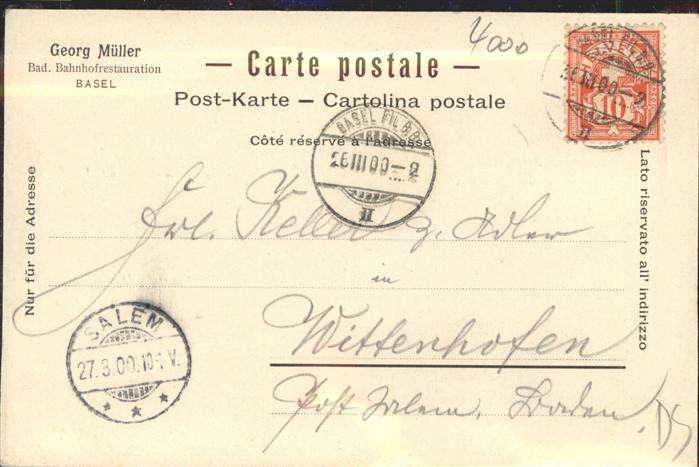 4000
Georg Müller
Bad. Bahnhofrestauration
BASEL
— Carte postale —
Post-Karte — Cartolina postale
Côté réservé à l'adresse
Nur für die Adresse
Lato riservato all' indirizzo
10
26.III.00-2
II
BASEL FIL. B.B.
26.III.00-2
II
Frl. Keller z. Adler
in
Wittenhofen
Post Salem, Baden.
SALEM
27.3.00.10-1 V.